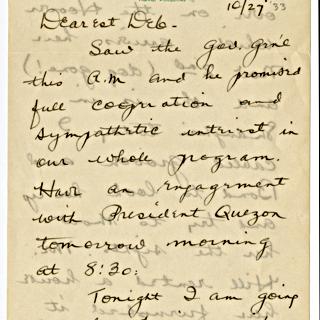 10/27 '33
Dearest Deb -
Saw the Gov. Gn'l
this A.M and he promised
full cooperation and
sympathetic interest in
our whole program.
Have an engagement
with President Quezon
tomorrow morning
at 8:30.
Tonight I am going